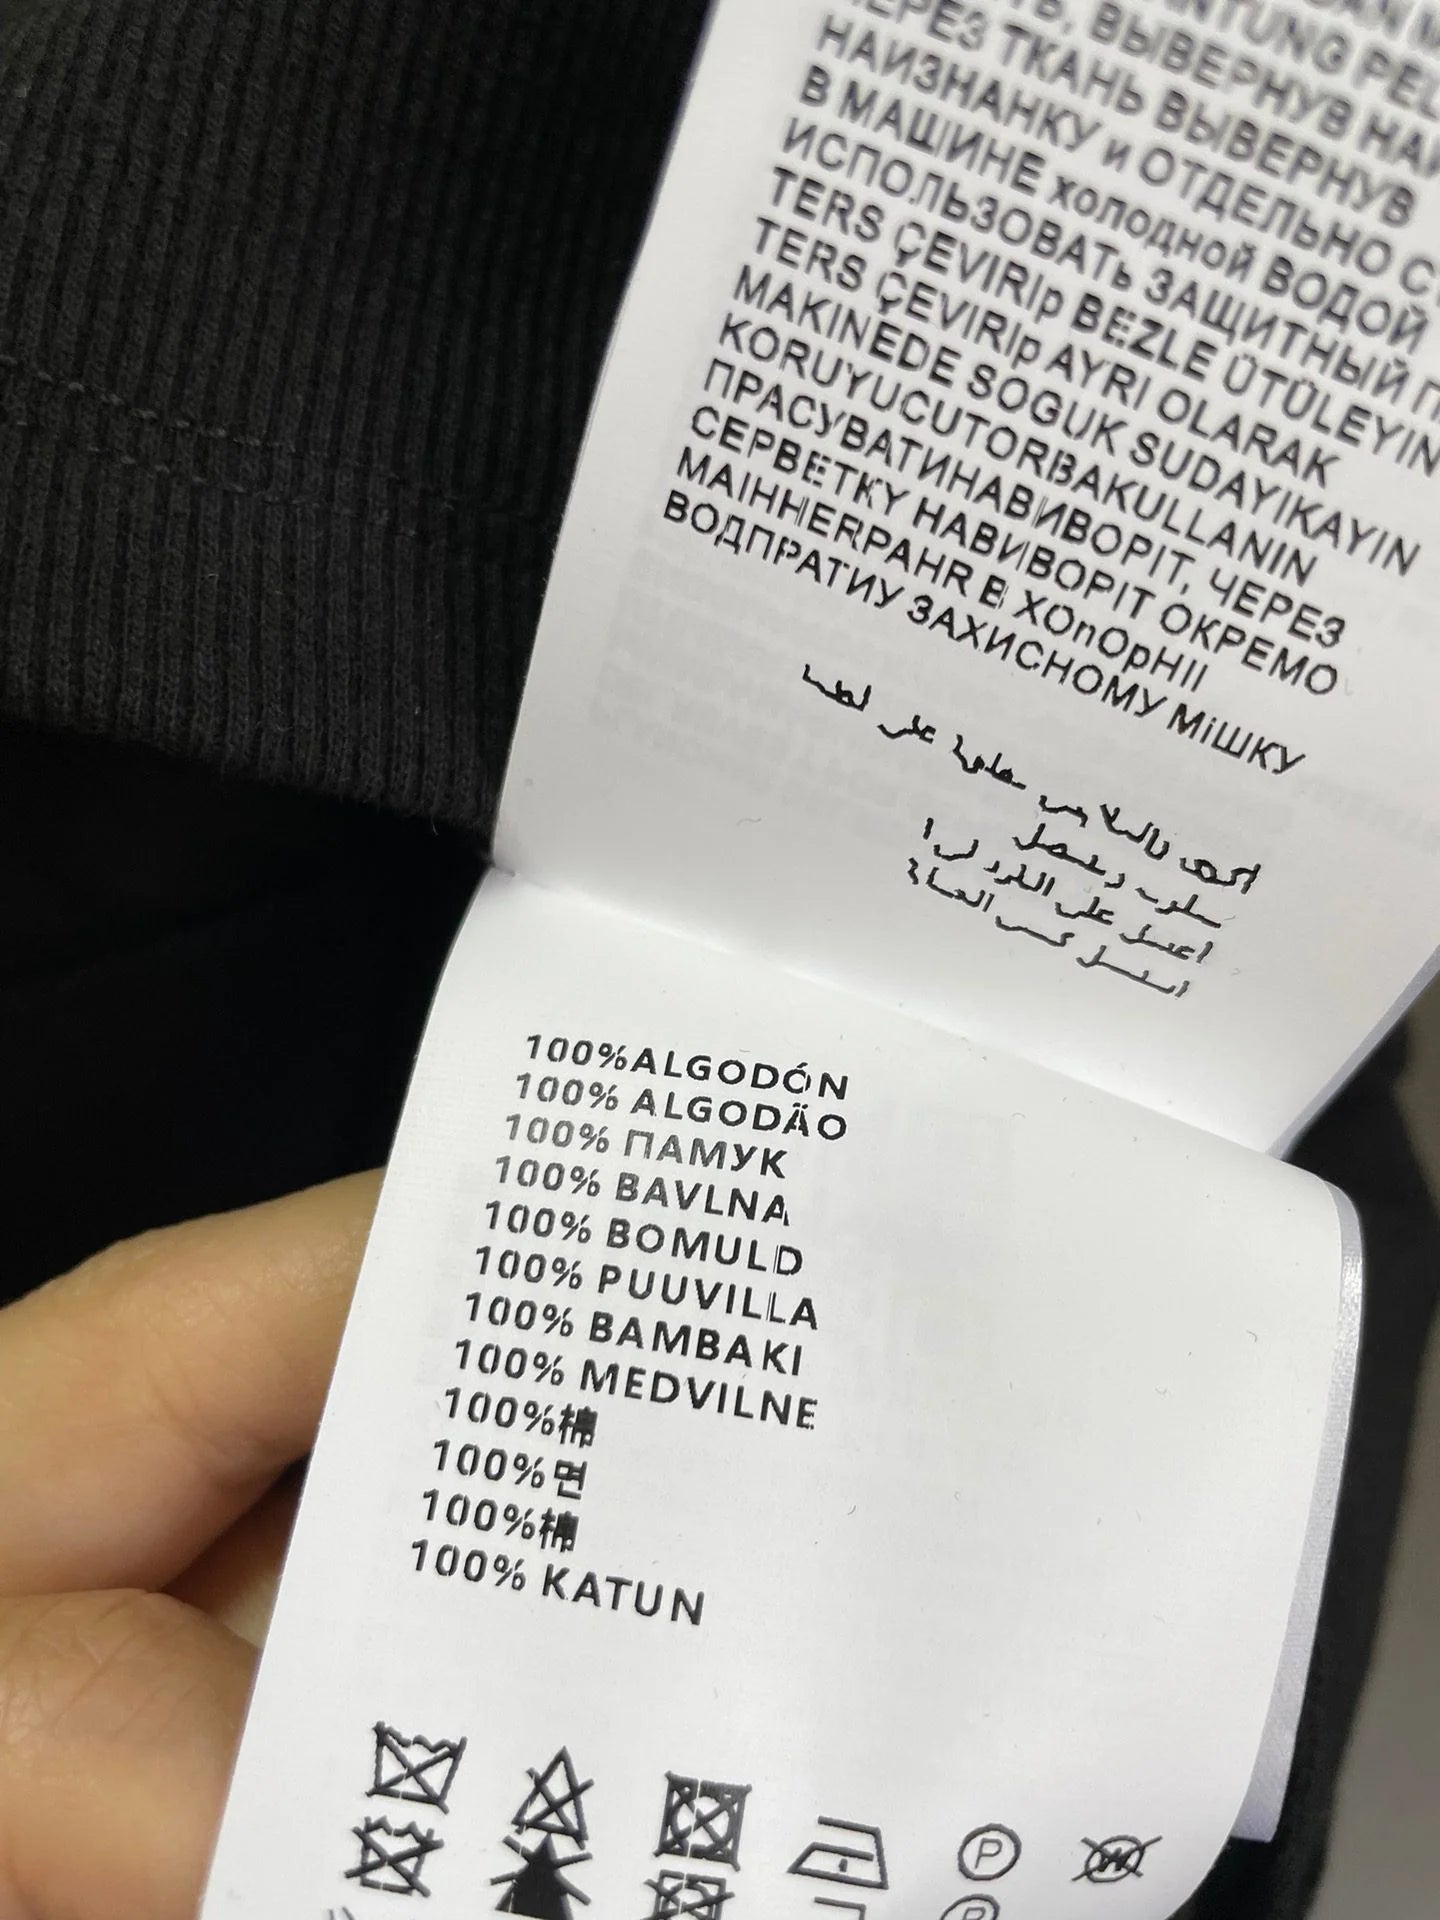 INTUNG PEL
ВЫВЕРНУВ НА
ЧЕРЕЗ ТКАНЬ ВЫВЕРНУВ
НАИЗНАНКУ и ОТДЕЛЬНО С
В МАШИНЕ холодной ВОДОЙ
ИСПОЛЬЗОВАТЬ ЗАЩИТНЫЙ П
TERS ÇEVIRIp BEZLE ÜTÜLEYIN
TERS ÇEVIRIp AYRI OLARAK
MAKINEDE SOGUK SUDAYIKAYIN
KORUYUCUTORBAKULLANIN
ПРАСУВАТИНАВИВОРІТ, ЧЕРЕЗ
СЕРВЕТКУ НАВИВОРІТ ОКРЕМО
MAIHHERPAHR В XOnOpHII
ВОДПРАТИУ ЗАХИСНОМУ МіШКУ
100%ALGODÓN
100% ALGODÄO
100% ПАМУК
100% BAVLNA
100% BOMULD
100% PUUVILLA
100% BAMBAKI
100% MEDVILNE
100%棉
100%면
100%棉
100% KATUN
P
W
P